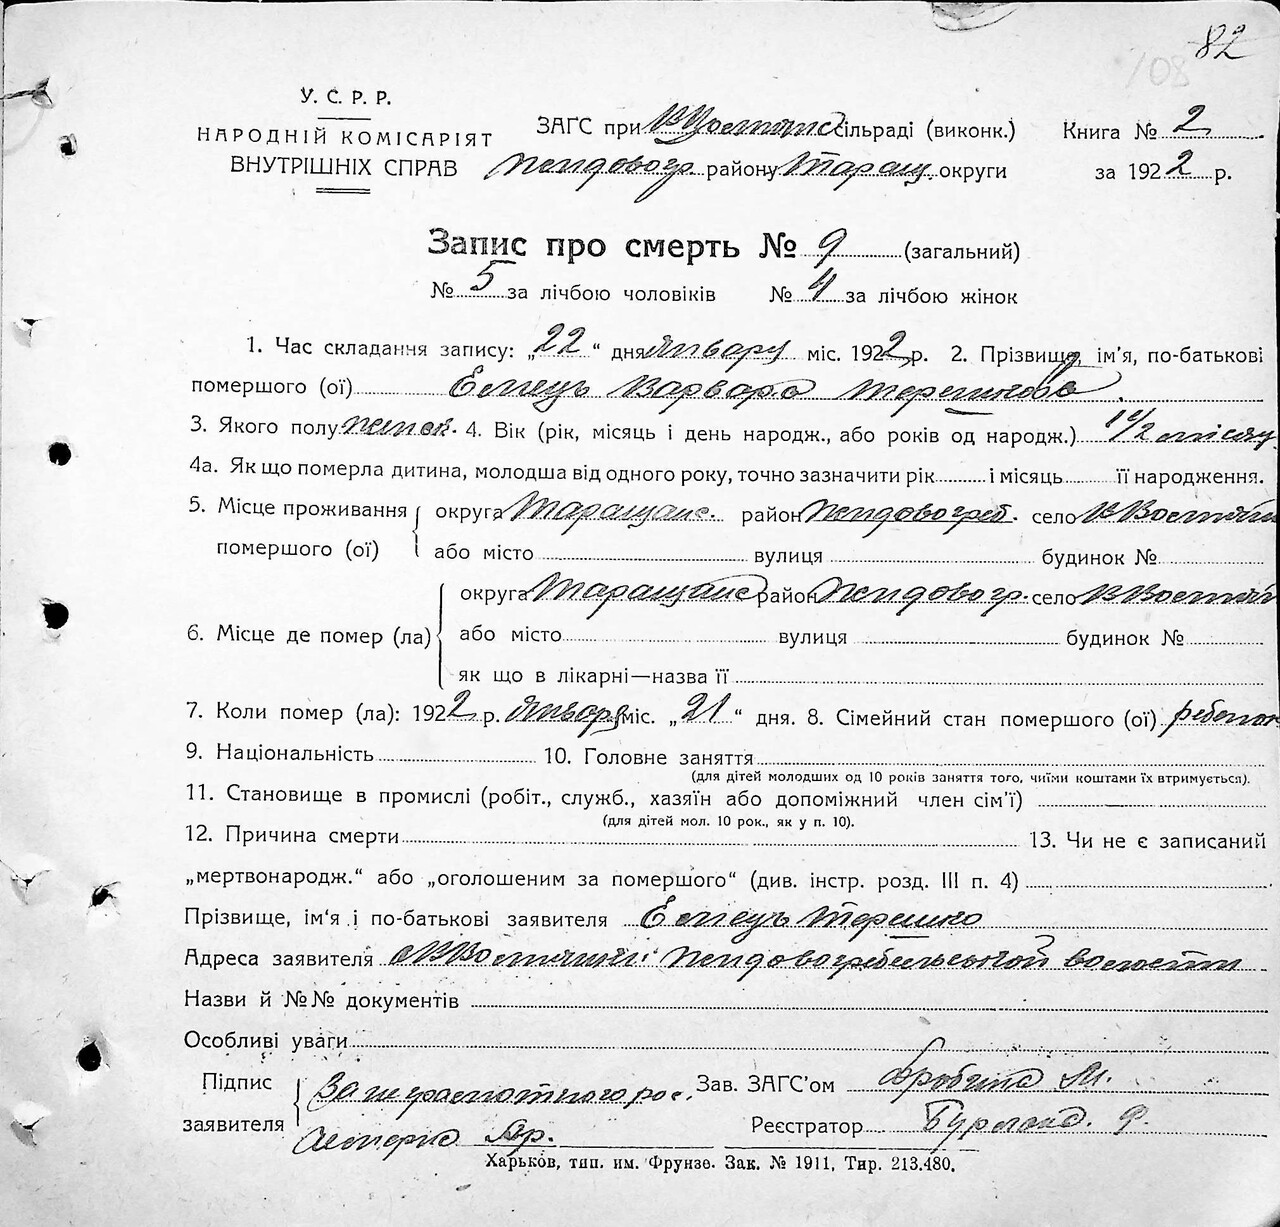 82
108
У. С. Р. Р.
НАРОДНІЙ КОМІСАРІЯТ
ВНУТРІШНІХ СПРАВ
ЗАГС при сільраді (виконк.)
району Таращ. округи
Книга № 2
за 1922 р.
Запис про смерть № 9 (загальний)
№ 5 за лічбою чоловіків № 4 за лічбою жінок
1. Час складання запису: „22“ дня январу міс. 1922 р. 2. Прізвище, ім'я, по-батькові
помершого (ої) Емець Варвара Терешкова
3. Якого полу женск. 4. Вік (рік, місяць і день народж., або років од народж.) 1 1/2 місяц
4а. Як що померла дитина, молодша від одного року, точно зазначити рік і місяць її народження.
5. Місце проживання округа Таращанс. район село
помершого (ої) або місто вулиця будинок №
округа Таращанс район село
6. Місце де помер (ла) або місто вулиця будинок №
як що в лікарні—назва її
7. Коли помер (ла): 1922 р. январу міс. „21“ дня. 8. Сімейний стан помершого (ої) ребенок
9. Національність 10. Головне заняття
(для дітей молодших од 10 років заняття того, чиїми коштами їх втримується).
11. Становище в промислі (робіт., служб., хазяїн або допоміжний член сім'ї)
(для дітей мол. 10 рок., як у п. 10).
12. Причина смерти 13. Чи не є записаний
„мертвонародж.“ або „оголошеним за помершого“ (див. інстр. розд. III п. 4)
Прізвище, ім'я і по-батькові заявителя Емець Терешко
Адреса заявителя волости
Назви й №№ документів
Особливі уваги
Підпис За неграмотного рос. Зав. ЗАГС'ом М.
заявителя Реєстратор Ф.
Харьков, тип. им. Фрунзе. Зак. № 1911, Тир. 213.480.